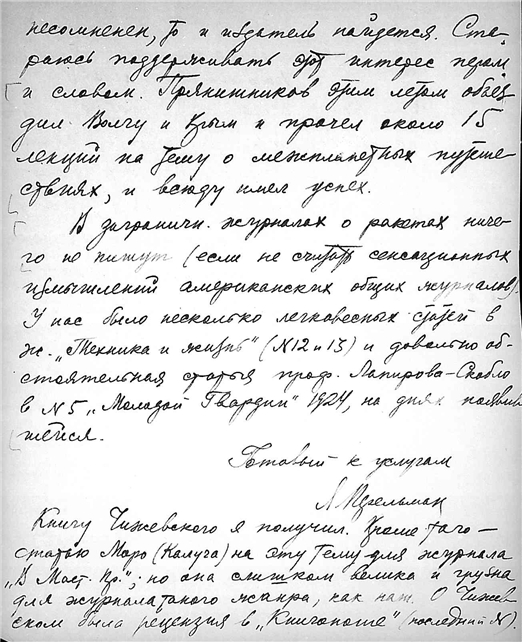 несомненен, то и издатель найдется. Ста-
раюсь поддерживать этот интерес пером
и словом. Прянишников этим летом объез
дил Волгу и Крым и прочел около 15
лекций на тему о межпланетных путеше
ствиях, и всюду имел успех.
В заграничн. журналах о ракетах ниче-
го не пишут (если не считать сенсационных
измышлений американских общих журналов).
У нас было несколько легковесных статей в
ж. „Техника и жизнь" (N12 и 13) и довольно об-
стоятельная статья проф. Лапирова-Скобло
в N5 „Молодой Гвардии" 1924, на днях появив
шейся.
Готовый к услугам
Я. Перельман
Книгу Чижевского я получил. Кроме того —
статью Маро (Калуга) на эту тему для журнала
„В Маст. Пр."; но она слишком велика и грубна
для журнала такого жанра, как наш. О Чижев-
ском была рецензия в „Книгоноше" (последний N).